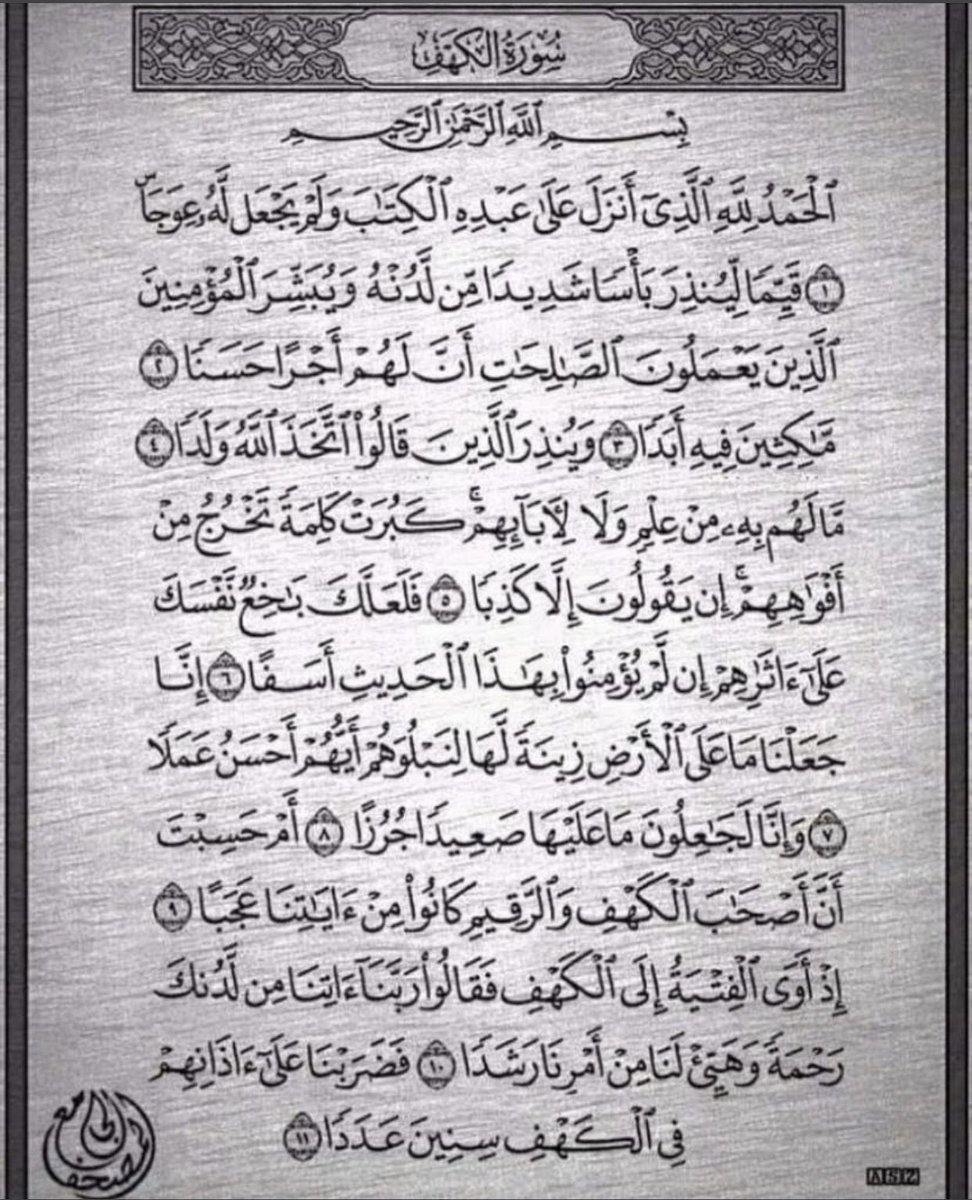 سُورَةُ الكَهْفِ
بِسْمِ ٱللَّهِ ٱلرَّحْمَٰنِ ٱلرَّحِيمِ
ٱلْحَمْدُ لِلَّهِ ٱلَّذِىٓ أَنزَلَ عَلَىٰ عَبْدِهِ ٱلْكِتَٰبَ وَلَمْ يَجْعَل لَّهُۥ عِوَجَاۜ
١ قَيِّمًا لِّيُنذِرَ بَأْسًا شَدِيدًا مِّن لَّدُنْهُ وَيُبَشِّرَ ٱلْمُؤْمِنِينَ
ٱلَّذِينَ يَعْمَلُونَ ٱلصَّٰلِحَٰتِ أَنَّ لَهُمْ أَجْرًا حَسَنًا ٢
مَّٰكِثِينَ فِيهِ أَبَدًا ٣ وَيُنذِرَ ٱلَّذِينَ قَالُوا۟ ٱتَّخَذَ ٱللَّهُ وَلَدًا ٤
مَّا لَهُم بِهِۦ مِنْ عِلْمٍ وَلَا لِأَبَآئِهِمْۚ كَبُرَتْ كَلِمَةً تَخْرُجُ مِنْ
أَفْوَٰهِهِمْۚ إِن يَقُولُونَ إِلَّا كَذِبًا ٥ فَلَعَلَّكَ بَٰخِعٌ نَّفْسَكَ
عَلَىٰٓ ءَاثَٰرِهِمْ إِن لَّمْ يُؤْمِنُوا۟ بِهَٰذَا ٱلْحَدِيثِ أَسَفًا ٦ إِنَّا
جَعَلْنَا مَا عَلَى ٱلْأَرْضِ زِينَةً لَّهَا لِنَبْلُوَهُمْ أَيُّهُمْ أَحْسَنُ عَمَلًا
٧ وَإِنَّا لَجَٰعِلُونَ مَا عَلَيْهَا صَعِيدًا جُرُزًا ٨ أَمْ حَسِبْتَ
أَنَّ أَصْحَٰبَ ٱلْكَهْفِ وَٱلرَّقِيمِ كَانُوا۟ مِنْ ءَايَٰتِنَا عَجَبًا ٩
إِذْ أَوَى ٱلْفِتْيَةُ إِلَى ٱلْكَهْفِ فَقَالُوا۟ رَبَّنَآ ءَاتِنَا مِن لَّدُنكَ
رَحْمَةً وَهَيِّئْ لَنَا مِنْ أَمْرِنَا رَشَدًا ١٠ فَضَرَبْنَا عَلَىٰٓ ءَاذَانِهِمْ
فِى ٱلْكَهْفِ سِنِينَ عَدَدًا ١١
ASZ